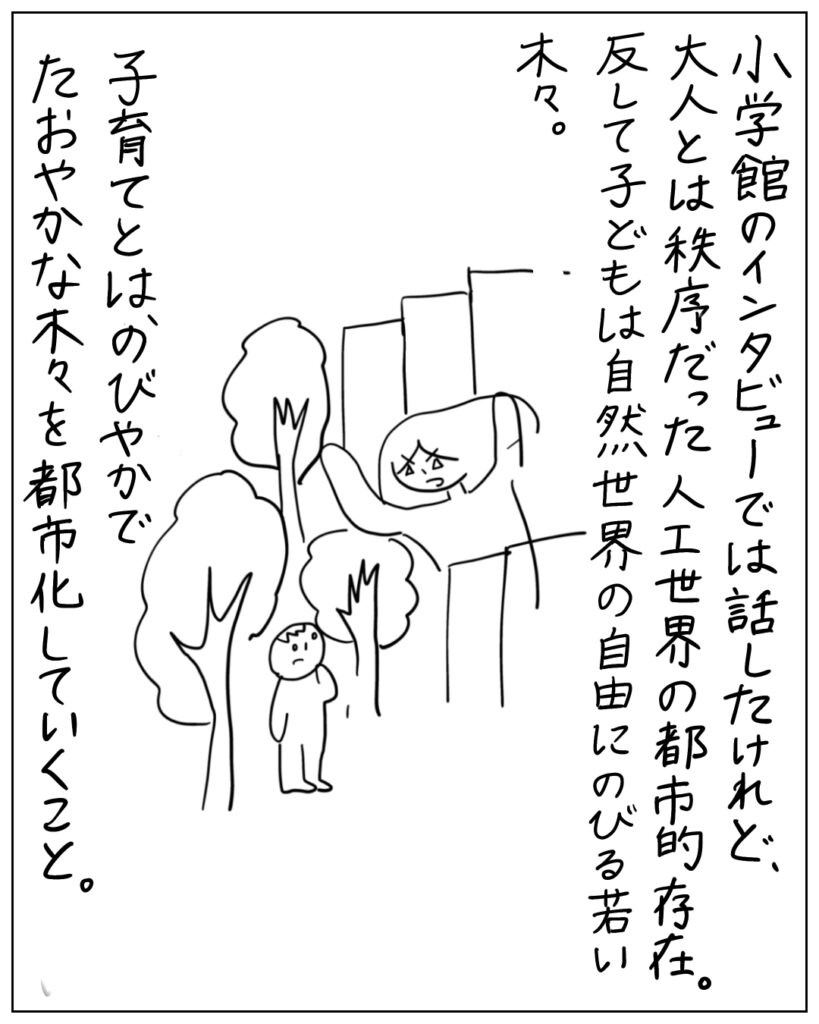 小学館のインタビューでは話したけれど、
大人とは秩序だった人工世界の都市的存在。
反して子どもは自然世界の自由にのびる若い
木々。
子育てとは、のびやかで
たおやかな木々を都市化していくこと。